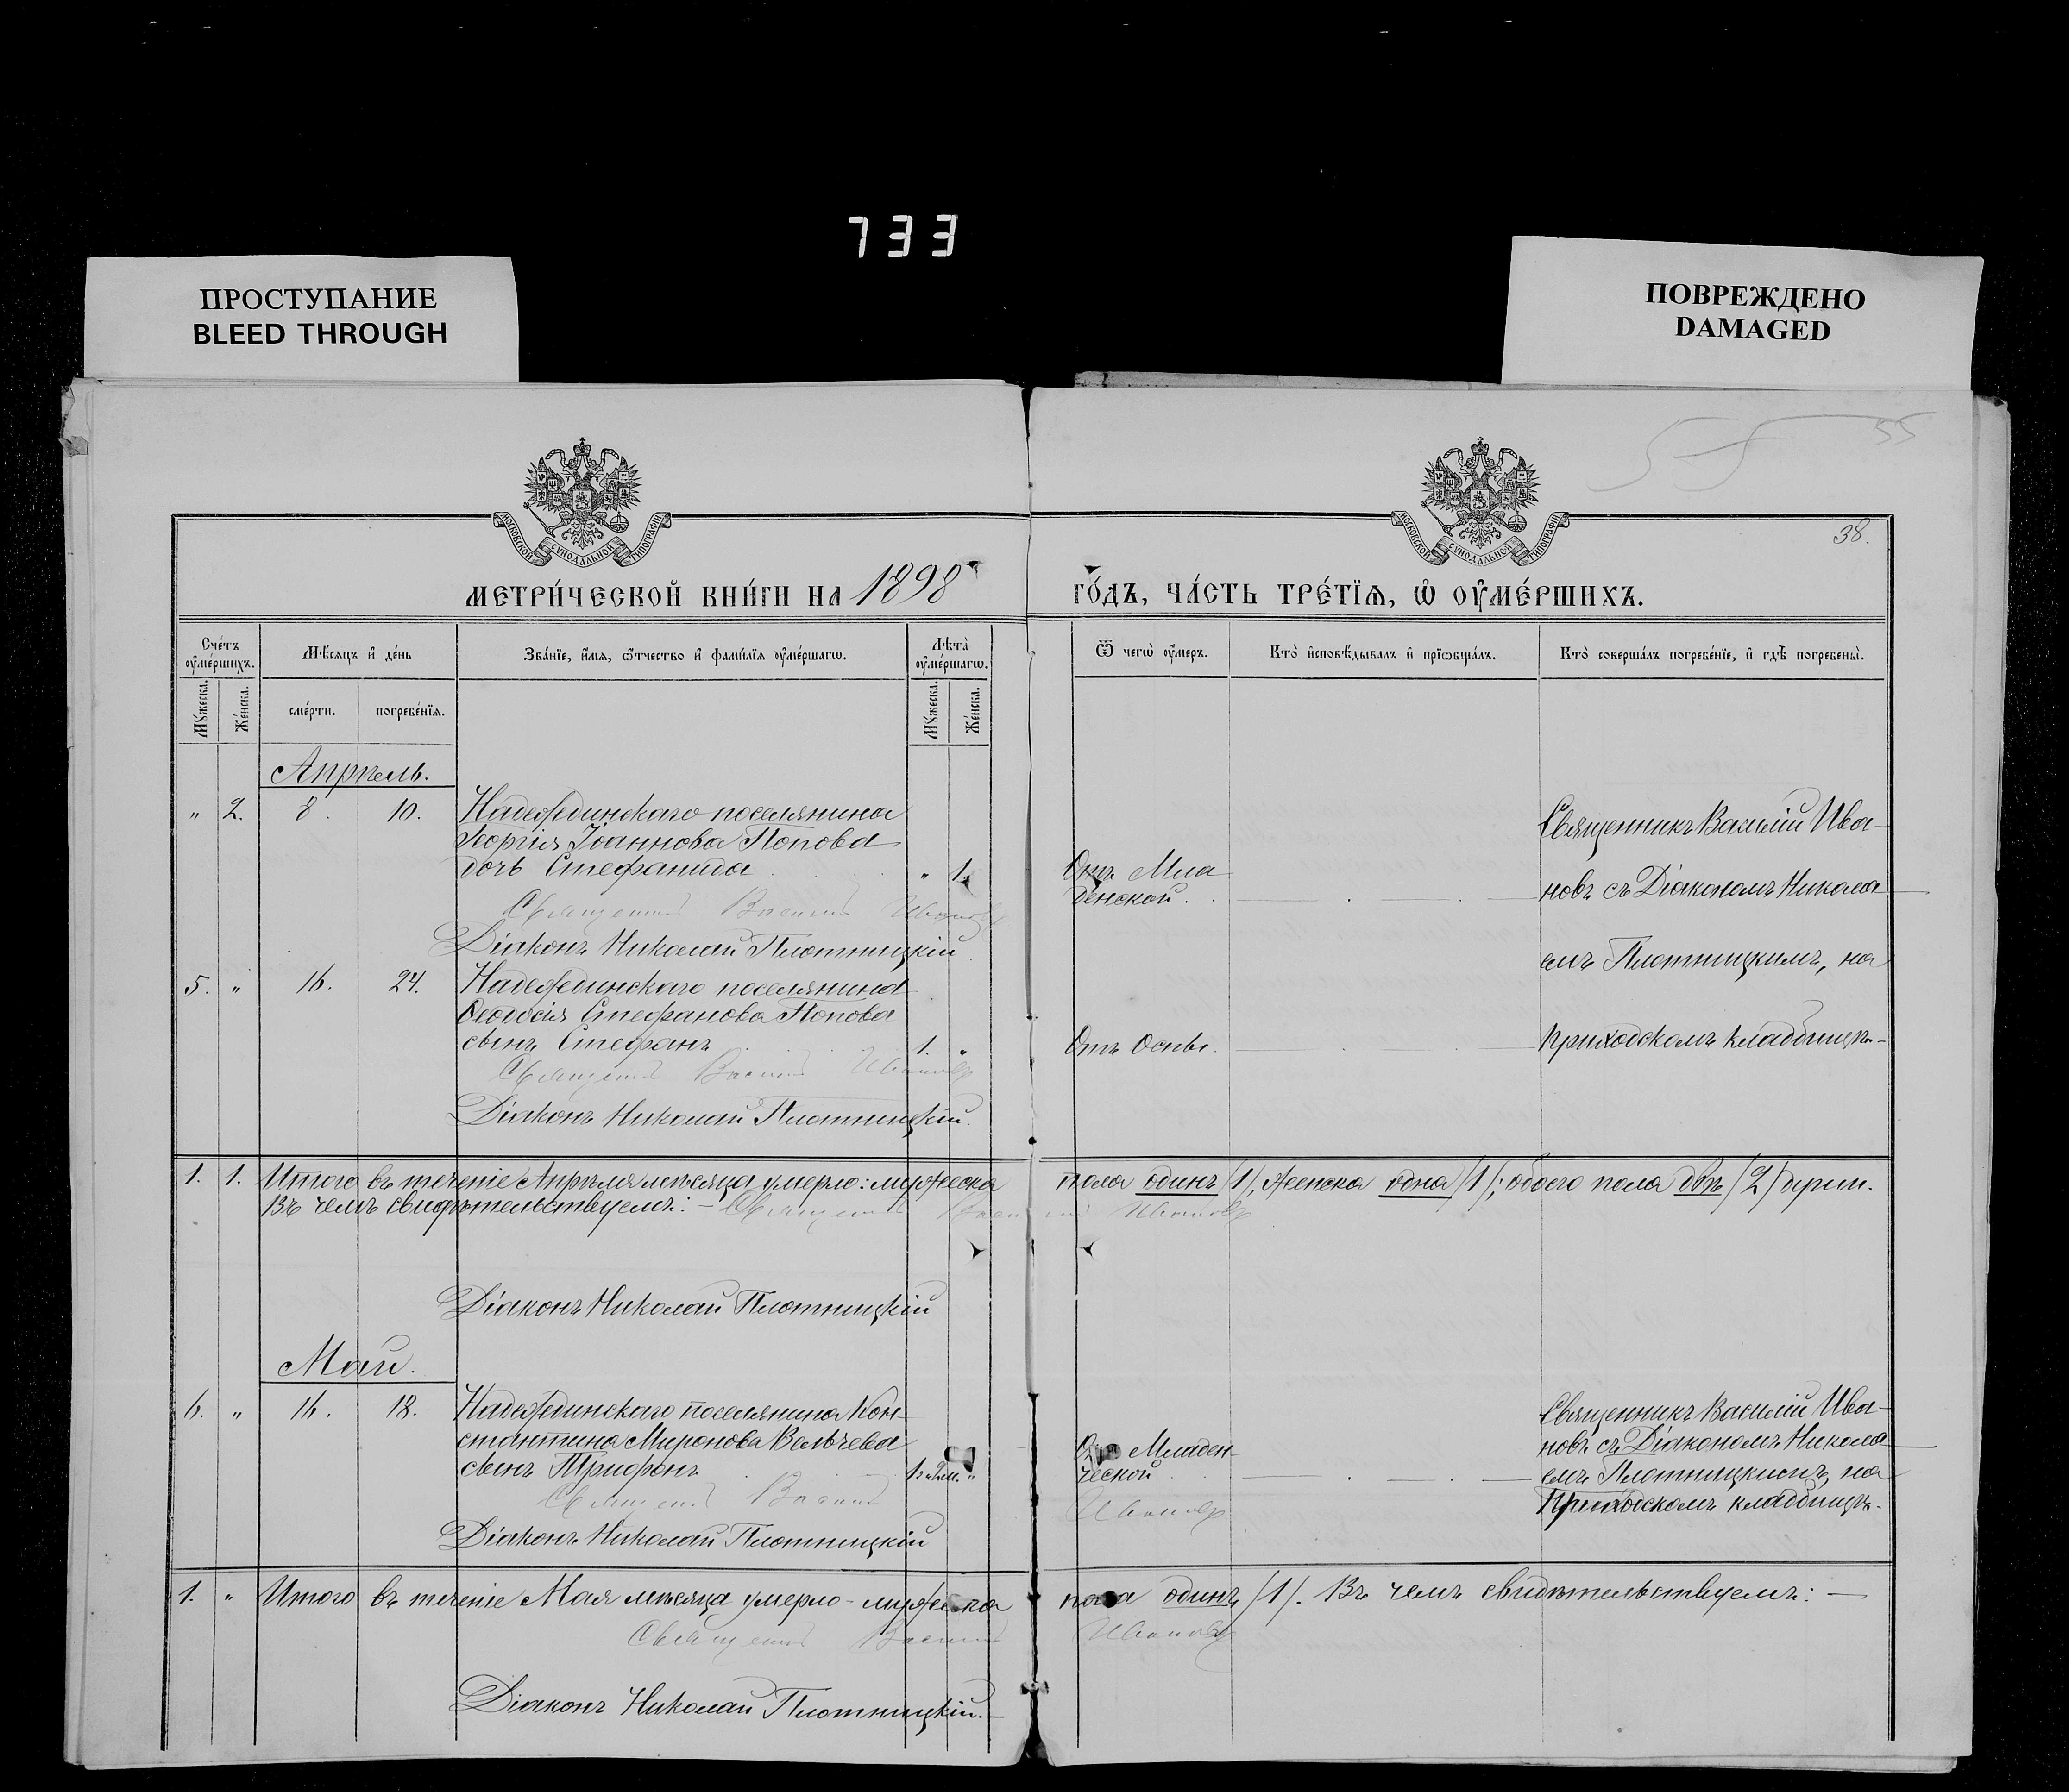 733
ПРОСТУПАНИЕ
BLEED THROUGH
ПОВРЕЖДЕНО
DAMAGED
55
38.
МОСКОВСКОЙ СУНОДАЛЬНОЙ ТИПОГРАФІИ
МОСКОВСКОЙ СУНОДАЛЬНОЙ ТИПОГРАФІИ
МЕТРИ́ЧЕСКОЙ КНИ́ГИ НА 1898 ГО́ДЪ, ЧА́СТЬ ТРЕ́ТЇѦ, Ѡ ОУ҆МЕ́РШИХЪ.
Сче́тъ оу҆ме́ршихъ.
Мꙋ́жеска.
Же́нска.
Мѣ́сяцъ и҆ де́нь
сме́рти.
погребе́нїѧ.
Зва́нїе, и҆́мѧ, ѻ҆́тчество и҆ фами́лїѧ оу҆ме́ршагѡ.
Лѣта̀ оу҆ме́ршагѡ.
Мꙋ́жеска.
Же́нска.
Ѿ чегѡ̀ оу҆́меръ.
Кто̀ и҆сповѣ́дывалъ и҆ прїѡбща́лъ.
Кто̀ соверша́лъ погребе́нїе, и҆ гдѣ̀ погребены̀.
Апрѣль.
" 2. 8. 10. Надеждинскаго поселянина
Георгія Іоаннова Попова
дочь Стефанида " 1.
Отъ Мла
денской.
Священникъ Василій Ивановъ
Діаконъ Николай Плотницкій.
Священникъ Василій Ива-
новъ съ Діакономъ Никола
емъ Плотницкимъ, на
приходскомъ кладбищѣ-
5. " 16. 24. Надеждинскаго поселянина
Ѳеодосія Стефанова Попова
сынъ Стефанъ 1. "
Отъ Оспы.
Священникъ Василій Ивановъ
Діаконъ Николай Плотницкій.
1. 1. Итого въ теченіе Апрѣля мѣсяца умерло: мужеска пола одинъ /1/, женска одна /1/; обоего пола двѣ /2/ души.
Въ чемъ свидѣтельствуемъ: - Священникъ Василій Ивановъ
Діаконъ Николай Плотницкій
Май.
6. " 16. 18. Надеждинскаго поселянина Кон-
стантина Миронова Вельчева
сынъ Трифонъ
Младен
ческой
Священникъ Василій Ивановъ
Діаконъ Николай Плотницкій
Священникъ Василій Ива-
новъ съ Діакономъ Никола
емъ Плотницкимъ, на
Приходскомъ кладбищѣ.
1. " Итого въ теченіе Мая мѣсяца умерло - мужеска пола одинъ /1/. Въ чемъ свидѣтельствуемъ: -
Священникъ Василій Ивановъ
Діаконъ Николай Плотницкій.